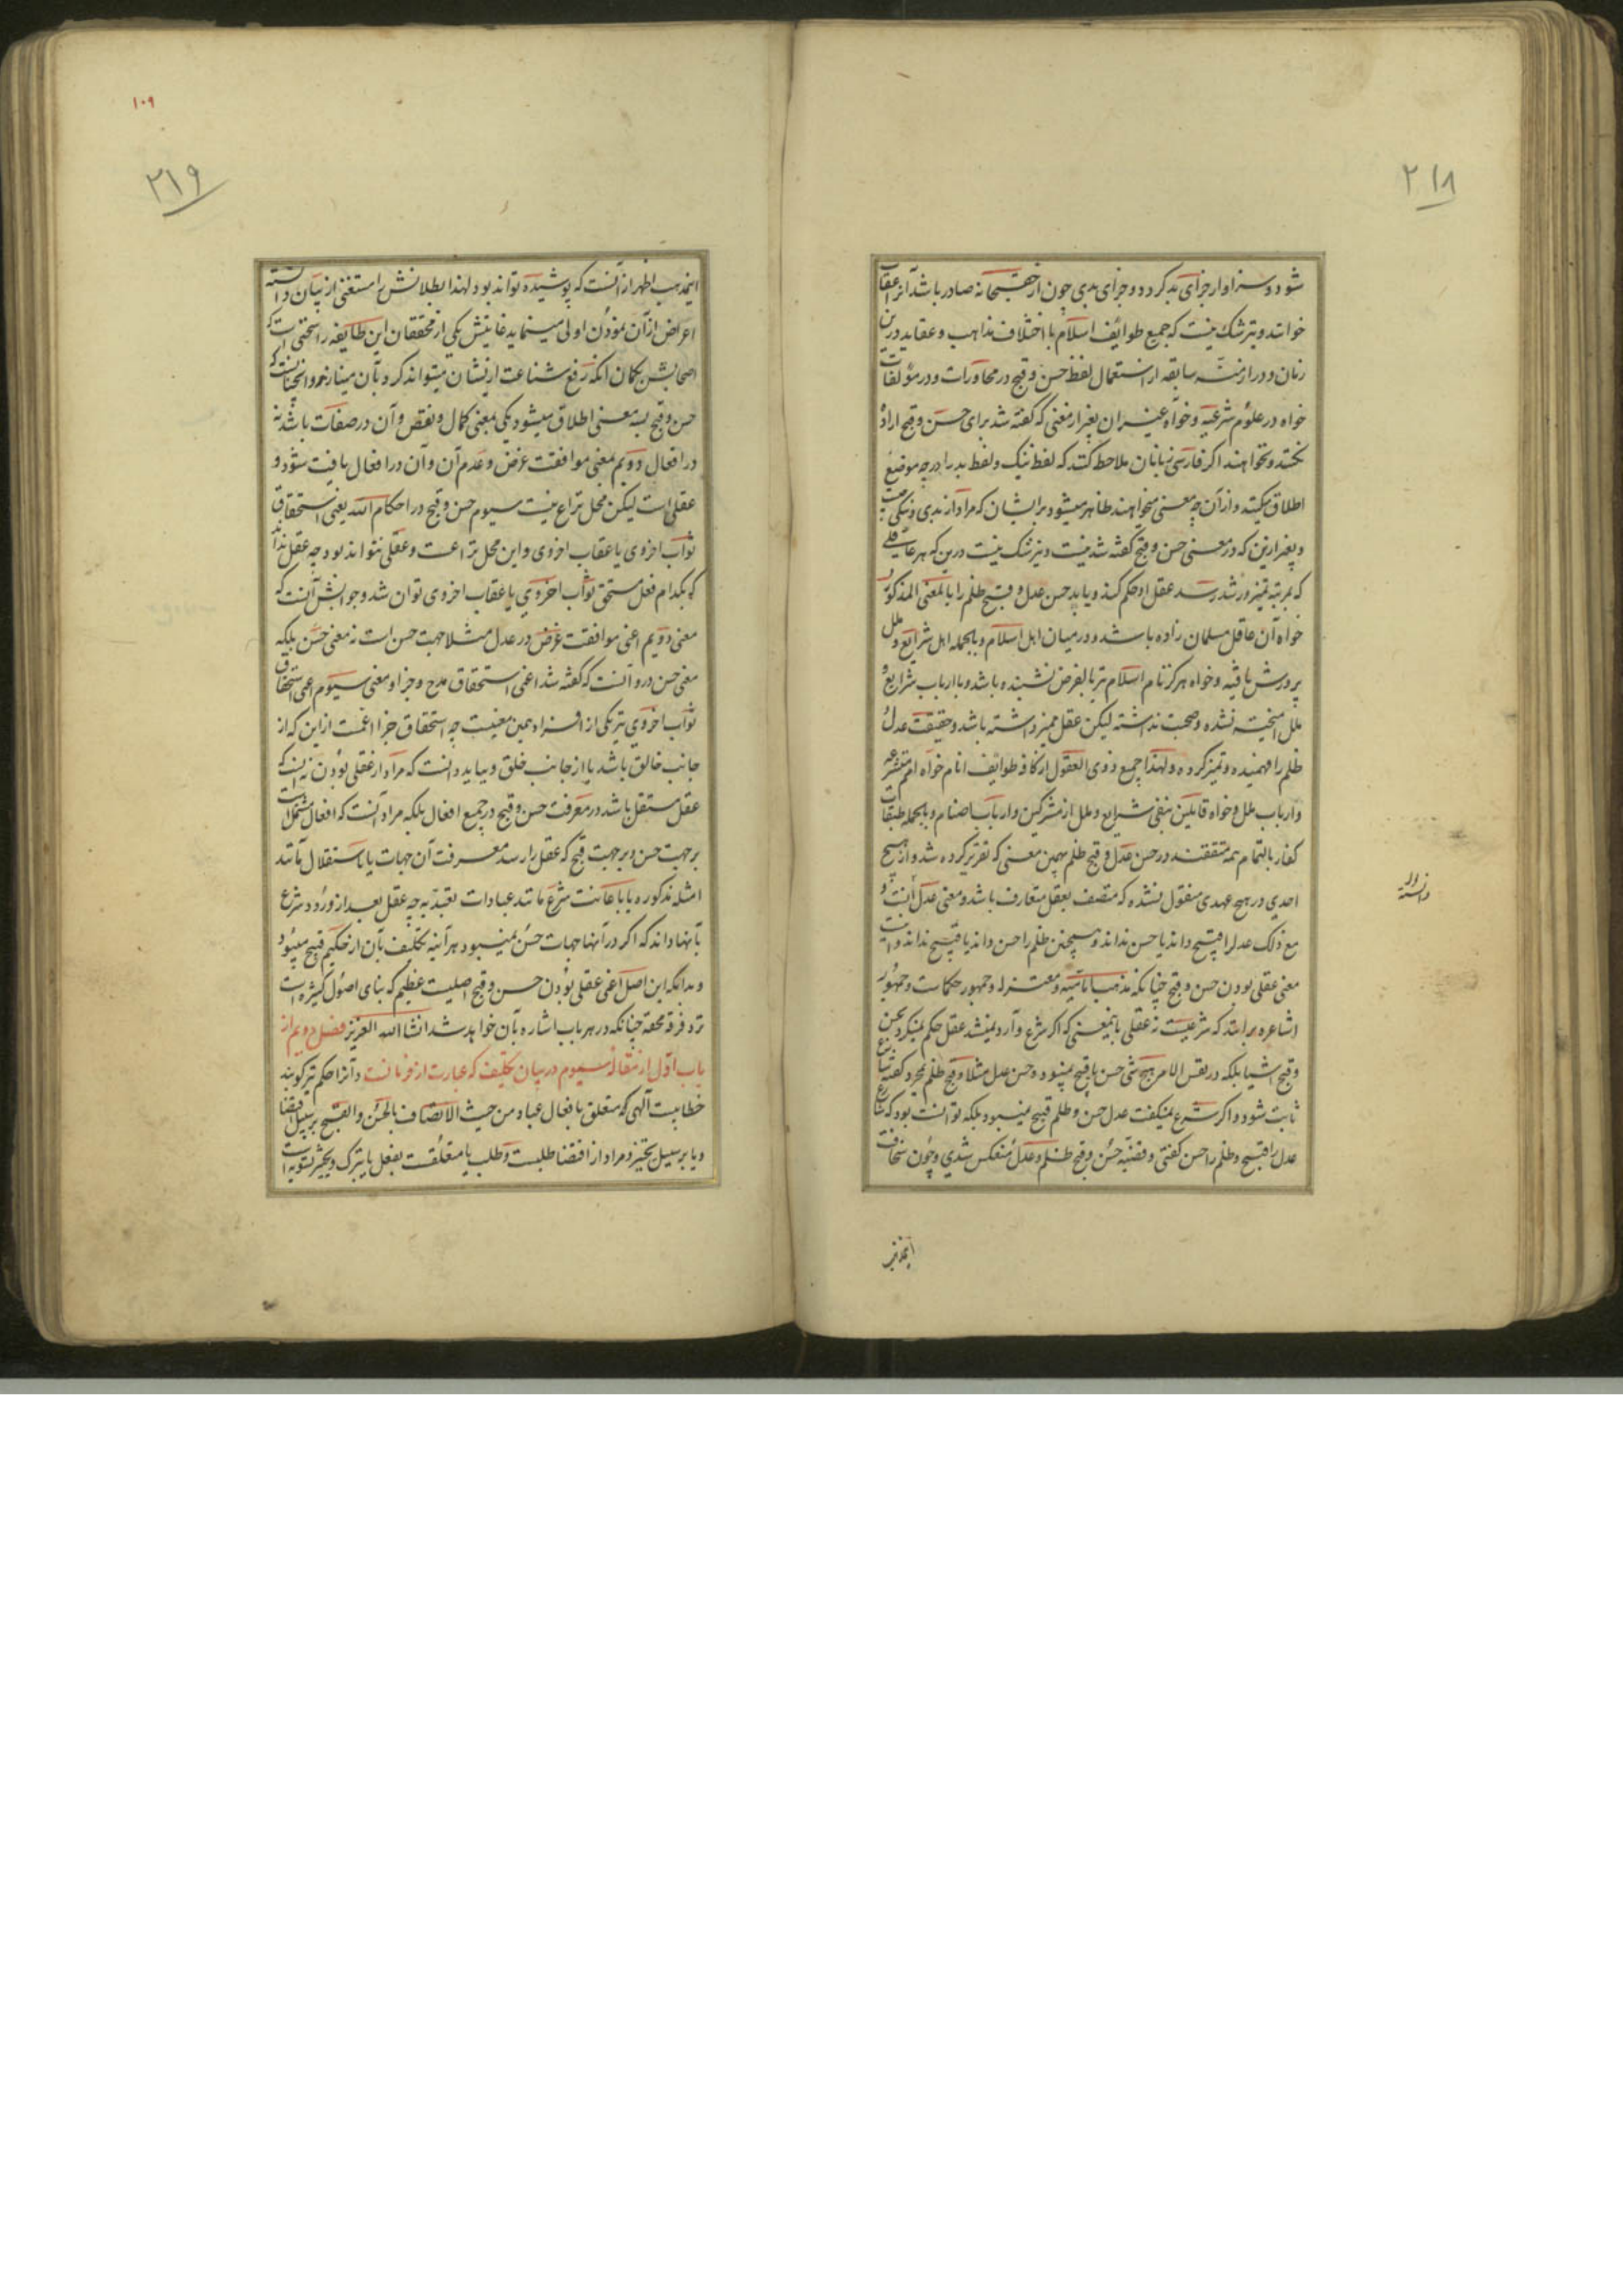 ۲۱۸
شود و سزاوار جزای بد گردد و جزای بدی چون از حق سبحانه صادر باشد آنرا عقاب
خوانند و نیز شک نیست که جمیع طوایف اسلام با اختلاف مذاهب و عقاید درین
زمان و در ازمنه سابقه از استعمال لفظ حسن و قبح در محاورات و در مؤلفات
خواه در علوم شرعیه و خواه غیر آن بغیر از معنی که گفته شد برای حسن و قبح اراده
نکنند و نخواهند اگر فارسی زبانان ملاحظه کنند که لفظ نیک و لفظ بد را در چه موضع
اطلاق میکنند و از آن چه معنی میخواهند ظاهر میشود بر ایشان که مراد از بدی و نیکی نیست
و بغیر ازین که در معنی حسن و قبح گفته شد نیست و نیز شک نیست درین که هر عاقلی
که بمرتبه تمیز و رشد رسد عقل او حکم کند و یابد حسن عدل و قبح ظلم را بالمعنی المذکور
خواه آن عاقل مسلمان زاده باشد و در میان اهل اسلام و بالجمله اهل شرایع و ملل
پرورش یافته و خواه هرگز نام اسلام نیز بالفرض نشنیده باشد و با ارباب شرایع و
ملل آمیخته نشده و صحبت نداشته لیکن عقل ممیز داشته باشد و حقیقت عدل و
ظلم را فهمیده و تمیز کرده و لهذا جمیع ذوی العقول از کافه طوایف انام خواه امم متشرعه
و ارباب ملل و خواه قایلین بنفی شرایع و ملل از مشرکین و ارباب اصنام و بالجمله طبقات
کفار بالتمام همه متفقند در حسن عدل و قبح ظلم بهمین معنی که تقریر کرده شد و از هیچ
احدی در هیچ عهدی منقول نشده که متصف بعقل متعارف باشد و معنی عدل و
مع ذلک عدل را قبیح داند یا حسن نداند و همچنین ظلم را حسن داند یا قبیح نداند و اینست
معنی عقلی بودن حسن و قبح چنانکه مذهب امامیه و معتزله و جمهور حکماست و جمهور
اشاعره برانند که شرعیست نه عقلی باینمعنی که اگر شرع وارد نمیشد عقل حکم نمیکرد بحسن
و قبح اشیا بلکه در نفس الامر هیچ شی حسن یا قبیح نمیبود و حسن عدل مثلا و قبح ظلم بمجرد گفته شارع
ثابت شود و اگر شرع نمیگفت عدل حسن و ظلم قبیح نمیبود بلکه توانست بود که شارع
عدل را قبیح و ظلم را حسن گفتی و قضیه حسن و قبح ظلم و عدل منعکس شدی و چون سخافت
اینمذهب
۱۰۹
۲۱۹
اینمذهب اظهر از آنست که پوشیده تواند بود لهذا بطلانش را مستغنی از بیان دانسته
اعراض از آن نمودن اولی مینماید غایتش یکی از محققان این طایفه را سخنی است که
اصحابش بگمان آنکه رفع شناعت ازیشان میتواند کرد و بآن مینازند و آنچنانست که
حسن و قبح بسه معنی اطلاق میشود یکی بمعنی کمال و نقص و آن در صفات باشد نه
در افعال دویم بمعنی موافقت غرض و عدم آن و آن در افعال یافت شود و
عقلی است لیکن محل نزاع نیست سیوم حسن و قبح در احکام الله یعنی استحقاق
ثواب اخروی یا عقاب اخروی و این محل نزاعست و عقلی نتواند بود چه عقل نداند
که بکدام فعل مستحق ثواب اخروی یا عقاب اخروی توان شد و جوابش آنست که
معنی دویم اعنی موافقت غرض در عدل مثلا جهت حسن است نه معنی حسن بلکه
معنی حسن درو آنست که گفته شد اعنی استحقاق مدح و جزا و معنی سیوم اعنی استحقاق
ثواب اخروی نیز یکی از افراد همین معنیست چه استحقاق جزا اعمست از این که از
جانب خالق باشد یا از جانب خلق و بباید دانست که مراد از عقلی بودن نه آنست که
عقل مستقل باشد در معرفت حسن و قبح در جمیع افعال بلکه مراد آنست که افعال مشتملست
بر جهت حسن و بر جهت قبح که عقل را رسد معرفت آن جهات یا باستقلال مانند
امثله مذکوره یا باعانت شرع مانند عبادات تعبدیه چه عقل بعد از ورود شرع
بآنها داند که اگر در آنها جهات حسن نمیبود هر آینه تکلیف بآن از حکیم قبیح میبود
و بدانکه این اصل اعنی عقلی بودن حسن و قبح اصلیست عظیم که بنای اصول کثیره است
نزد فرقه محقه چنانکه در هر باب اشاره بآن خواهد شد انشاء الله العزیز فصل دویم از
باب اول از مقاله سیوم در بیان تکلیف که عبارت از فرمانست و آنرا حکم نیز گویند
خطابیست الهی که متعلق بافعال عباد من حیث الاتصاف بالحسن و القبح بر سبیل اقتضا
و یا بر سبیل تخییر و مراد از اقتضا طلبست و طلب یا متعلقست بفعل یا بترک و تخییر تسویه است